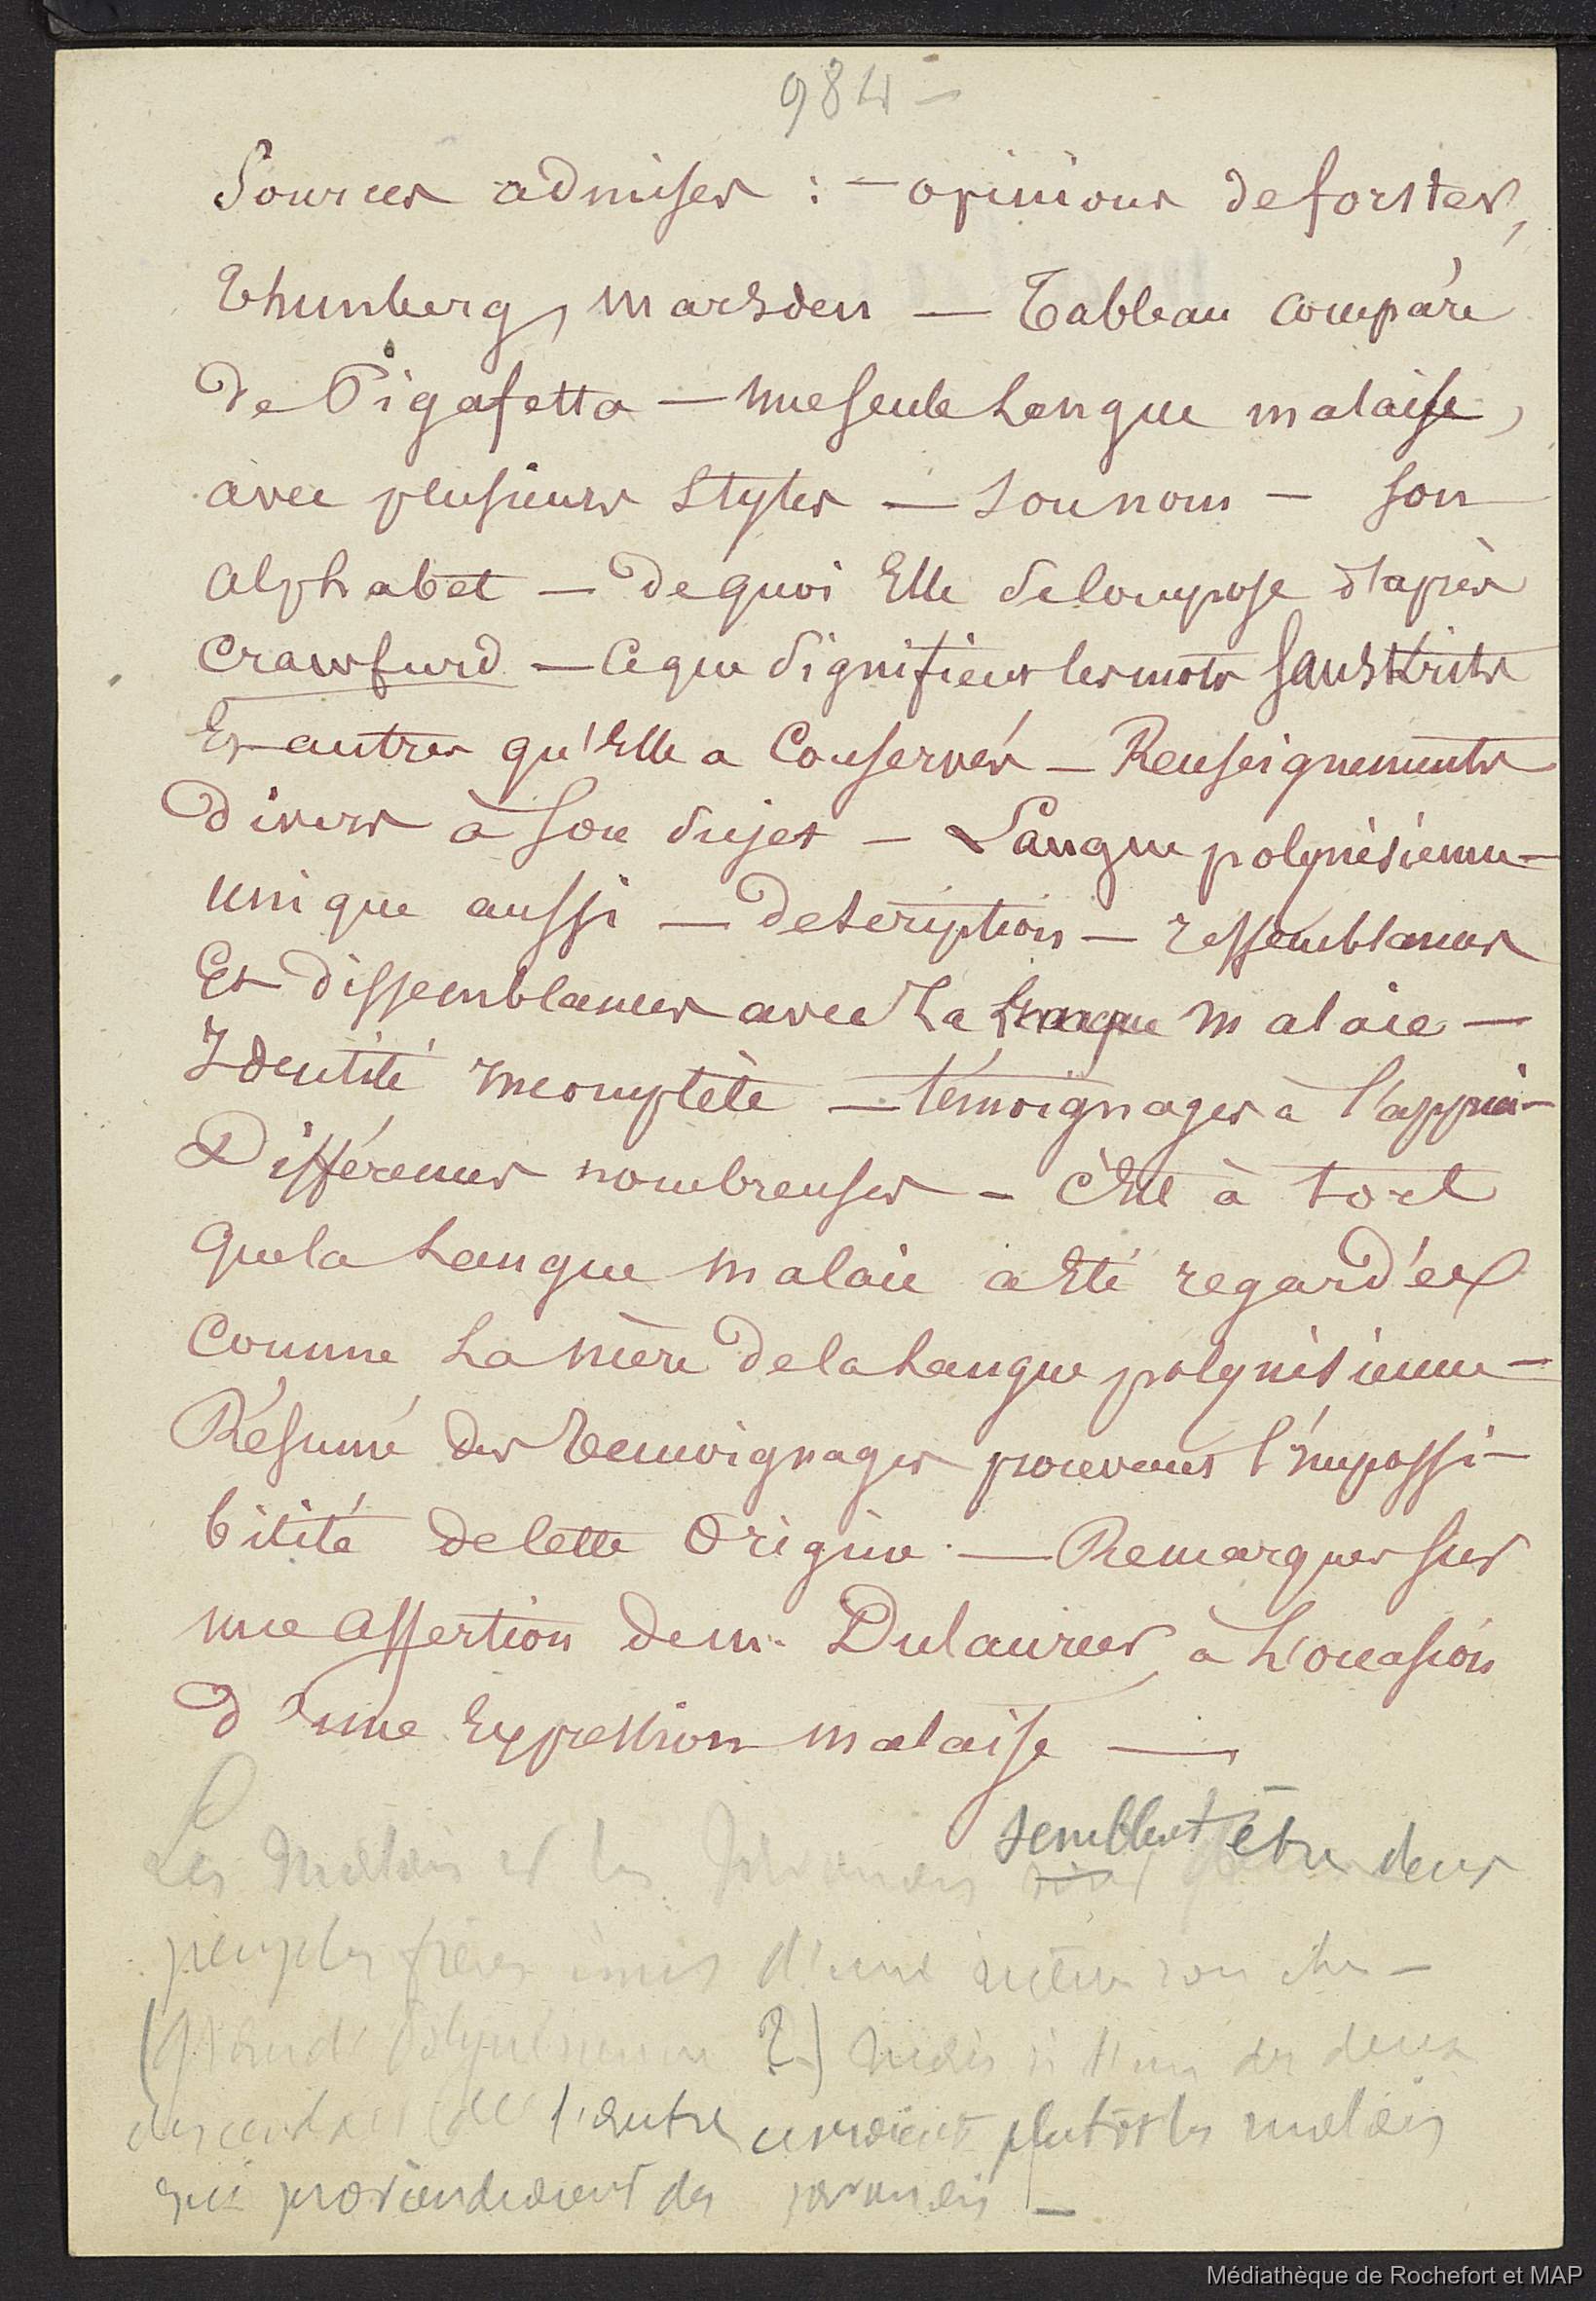 984 —
Sources admises : — opinions de forster,
Thunberg, Marsden — Tableau comparé
de Pigafetta — une seule Langue malaise,
avec plusieurs styles — son nom — son
alphabet — De quoi Elle se Compose d'après
Crawfurd — Ce que signifient les mots Sanskrits
Et autres qu'Elle a Conservés — Renseignements
divers à son sujet — Langue polynésienne —
unique aussi — Description — ressemblances
Et dissemblances avec La Langue malaie —
Identité incomplète — témoignages à l'appui —
Différences nombreuses — C'est à tort
que la Langue malaie a Eté regardée
Comme La mère de la Langue polynésienne —
Résumé des témoignages prouvant l'impossi-
bilité de Cette Origine — Remarques sur
une assertion de m. Dulaurier, à L'occasion
d'une Expression malaise —
Les Malais et les Javanais semblent être deux
peuples frères issus d'une même souche —
(grande Polynésienne ?) mais si l'un des deux
descendait de l'autre ce seraient plutôt les malais
qui proviendraient des javanais —
Médiathèque de Rochefort et MAP